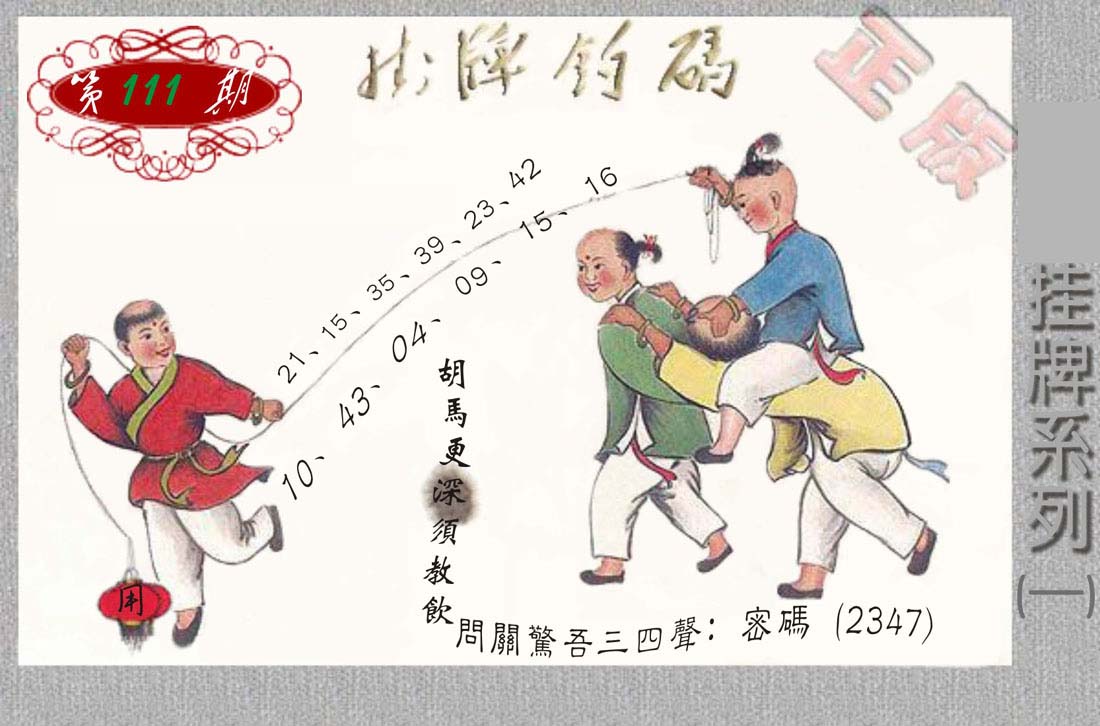 第 111 期
挂牌钓碼
正版
21、15、35、39、23、42
10、43、04、09、15、16
胡馬更深須教飲
問關驚吾三四聲：密碼 (2347)
用
挂牌系列(一)